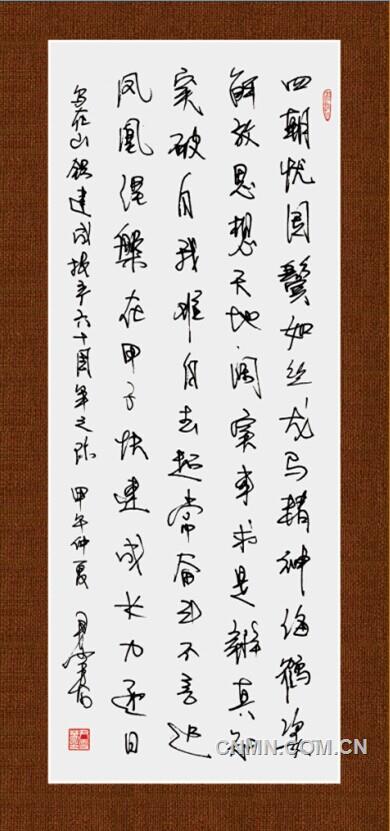 四朝忧国鬓如丝龙马精神海鹤姿
解放思想天地阔实事求是辨真知
突破自我难自去超常奋斗不言迟
凤凰涅槃在甲子快速成长力逐日
写在山铝建成投产六十周年之际 甲午仲夏
CNMN.COM.CN